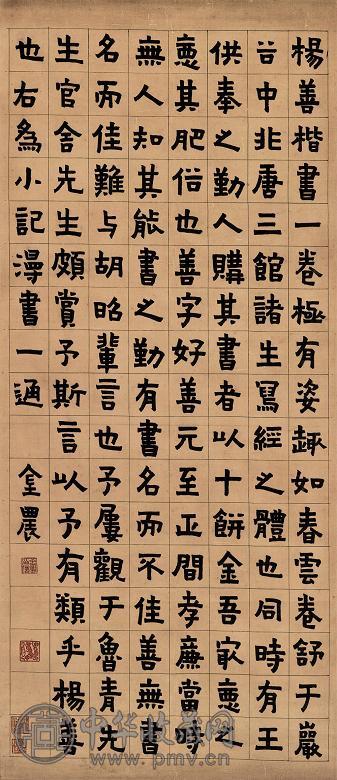 楊善楷書一卷極有姿趣如春雲卷舒于巖
谷中非唐三館諸生冩經之體也同時有王
供奉之勤人購其書者以十餅金吾㝡惡之
惡其肥俗也善字好善元至正間孝廉當時
無人知其能書之勤有書名而不佳善無書
名而佳難与胡昭輩言也予屢觀于魯青先
生官舍先生頗賞予斯言以予有類乎楊善
也右為小記漫書一通 金農
中华收藏网
www.pmv.cn